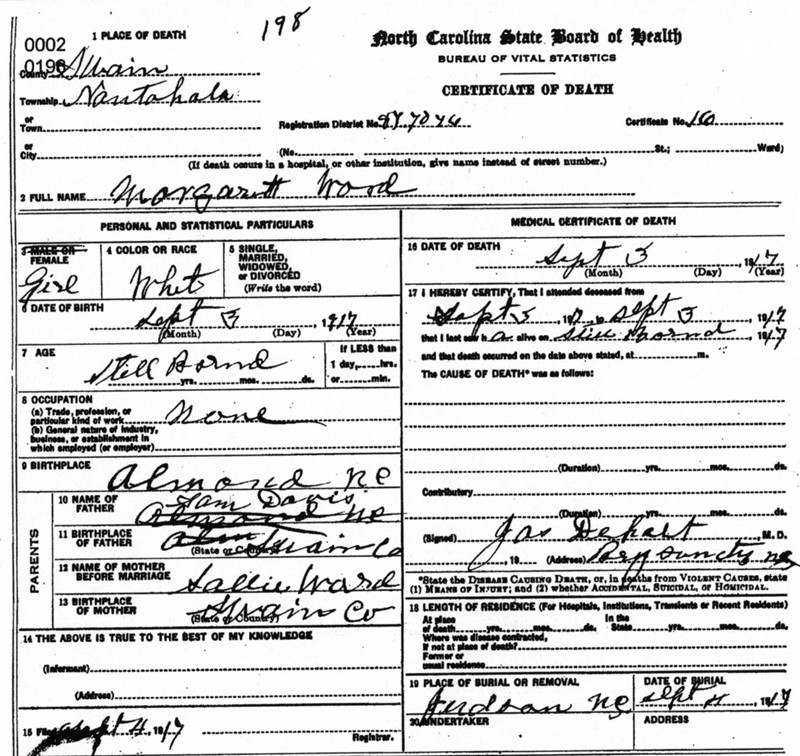 198
0002
0198
1 PLACE OF DEATH
North Carolina State Board of Health
BUREAU OF VITAL STATISTICS
CERTIFICATE OF DEATH
County Swain
Township Nantahala
or
Town
Registration District No. Certificate No. 160
or
City (No. St.; Ward)
(If death occurs in a hospital, or other institution, give name instead of street number.)
2 FULL NAME Margarett Wood
PERSONAL AND STATISTICAL PARTICULARS
3 MALE OR FEMALE
Girl
4 COLOR OR RACE
Whit
5 SINGLE, MARRIED, WIDOWED, or DIVORCED
(Write the word)
6 DATE OF BIRTH
Sept 3 1917
(Month) (Day) (Year)
7 AGE
Still Bornd
yrs. mos. ds.
If LESS than
1 day, hrs.
or min.
8 OCCUPATION
(a) Trade, profession, or
particular kind of work None
(b) General nature of industry,
business, or establishment in
which employed (or employer)
9 BIRTHPLACE
Almond NC
PARENTS
10 NAME OF FATHER
Davis
Almond NC
11 BIRTHPLACE OF FATHER
Swain Co
(State or County)
12 NAME OF MOTHER BEFORE MARRIAGE
Sallie Ward
13 BIRTHPLACE OF MOTHER
Swain Co
(State or County)
14 THE ABOVE IS TRUE TO THE BEST OF MY KNOWLEDGE
(Informant)
(Address)
15 Filed Sept 4 1917
Registrar.
MEDICAL CERTIFICATE OF DEATH
16 DATE OF DEATH
Sept 3 1917
(Month) (Day) (Year)
17 I HEREBY CERTIFY, That I attended deceased from
Sept 3 to Sept 3 1917
that I last saw h a alive on Still Bornd 1917
and that death occurred on the date above stated, at m.
The CAUSE OF DEATH* was as follows:
(Duration) yrs. mos. ds.
Contributory
(Duration) yrs. mos. ds.
(Signed) Jas Dehart M.D.
, 19 (Address) NC
*State the DISEASE CAUSING DEATH, or, in deaths from VIOLENT CAUSES, state
(1) MEANS OF INJURY; and (2) whether ACCIDENTAL, SUICIDAL, or HOMICIDAL.
18 LENGTH OF RESIDENCE (For Hospitals, Institutions, Transients or Recent Residents)
At place of death yrs. mos. ds. In the State yrs. mos. ds.
Where was disease contracted,
If not at place of death?
Former or
usual residence
19 PLACE OF BURIAL OR REMOVAL
Judson NC
DATE OF BURIAL
Sept 4 1917
20 UNDERTAKER
ADDRESS